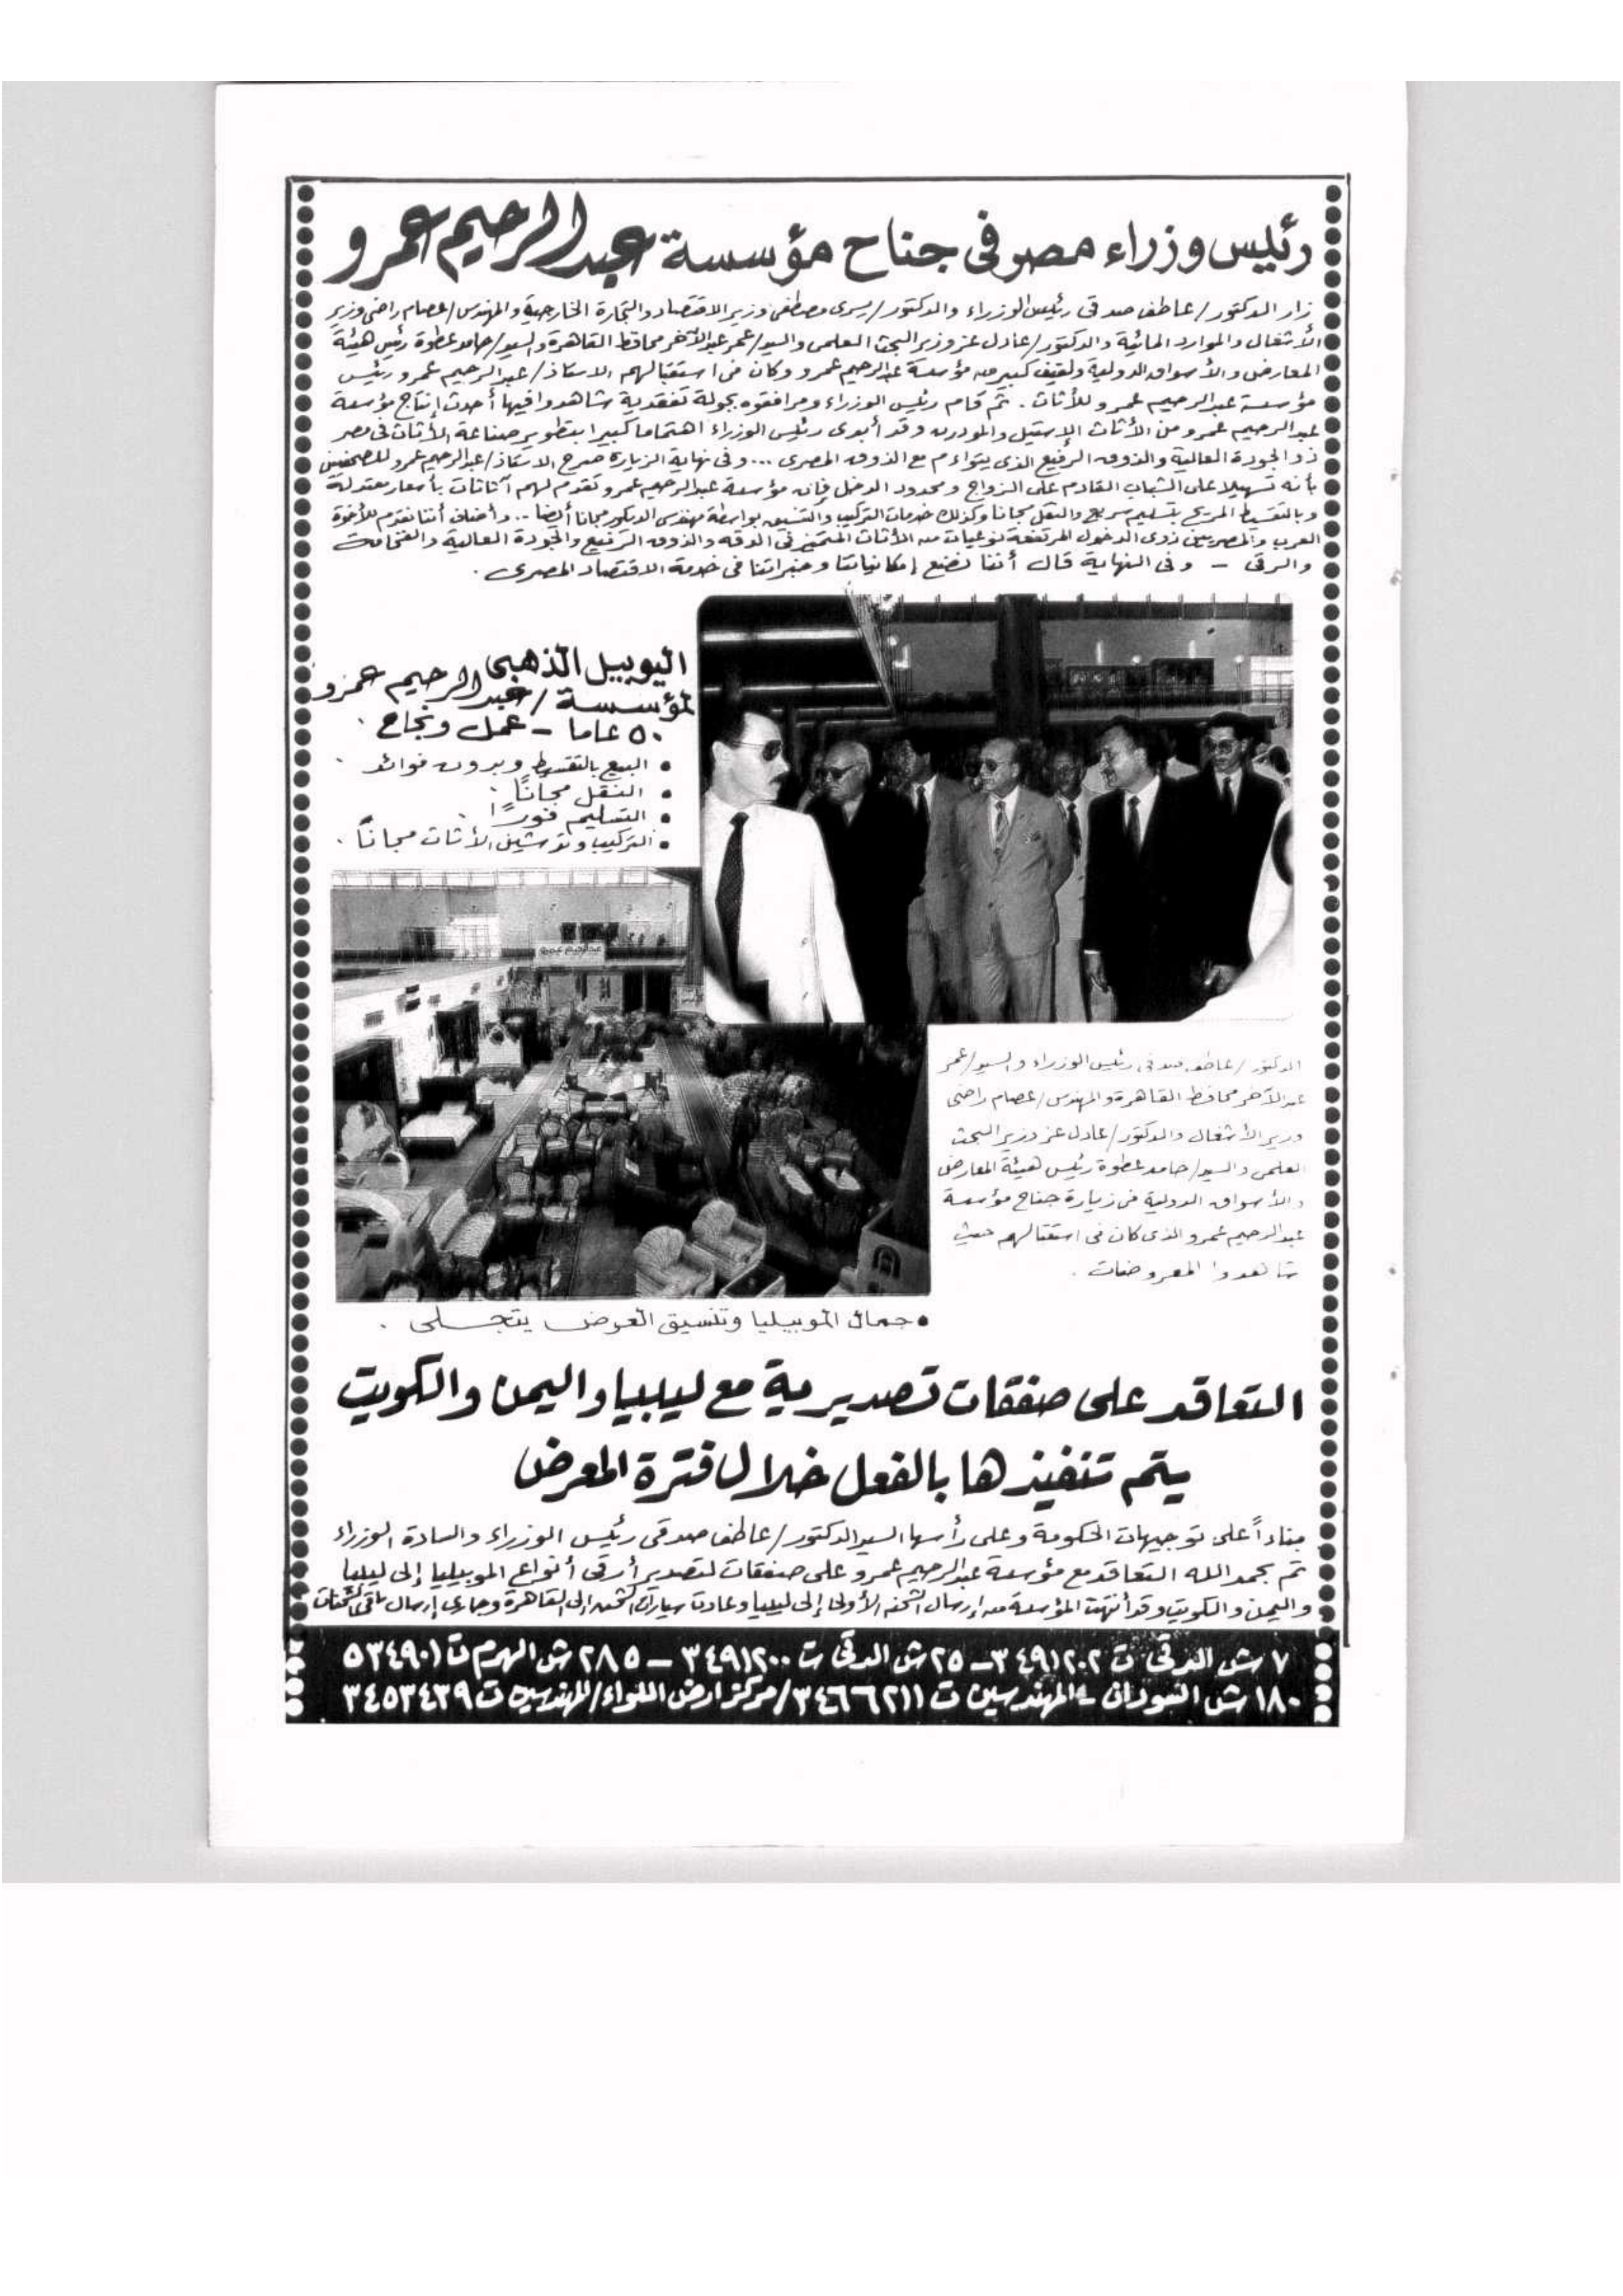 رئيس وزراء مصر فى جناح مؤسسة عبد الرحيم عمرو
زار الدكتور / عاطف صدقى رئيس الوزراء والدكتور / يسرى مصطفى وزير الاقتصاد والتجارة الخارجية والمهندس / عصام راضى وزير
الأشغال والموارد المائية والدكتور / عادل عز وزير البحث العلمى والسيد / عمر عبد الآخر محافظ القاهرة والسيد / حامد عطوة رئيس هيئة
المعارض والأسواق الدولية ولفيف كبير من مؤسسة عبد الرحيم عمرو وكان فى استقبالهم الاستاذ / عبد الرحيم عمرو رئيس
مؤسسة عبد الرحيم عمرو للأثاث . ثم قام رئيس الوزراء ومرافقوه بجولة تفقدية شاهدوا فيها أحدث إنتاج مؤسسة
عبد الرحيم عمرو من الأثاث الإستيل والمودرن وقد أبدى رئيس الوزراء اهتماما كبيرا بتطوير صناعة الأثاث فى مصر
ذو الجودة العالية والذوق الرفيع الذى يتواءم مع الذوق المصرى ... وفى نهاية الزيارة صرح الاستاذ / عبد الرحيم عمرو للصحفيين
بأنه تسهيلا على الشباب القادم على الزواج ومحدود الدخل فإن مؤسسة عبد الرحيم عمرو تقدم لهم آثاثات بأسعار معتدلة
وبالتقسيط المريح بتسليم سريع والنقل مجانا وكذلك خدمات التركيب والتنسيق بواسطة مهندس الديكور مجانا أيضا .. وأضاف أننا نقدم للأخوة
العرب والمصريين ذوى الدخول المرتفعة نوعيات من الأثاث المتميز فى الدقه والذوق الرفيع والجودة العالية والفخامة
والرقى - وفى النهاية قال أننا نضع إمكانياتنا وخبراتنا فى خدمة الاقتصاد المصرى .
اليوبيل الذهبى
لمؤسسة / عبد الرحيم عمرو
٥٠ عاما - عمل ونجاح .
• البيع بالتقسيط وبدون فوائد .
• النقل مجاناً .
• التسليم فوراً .
• التركيب وتوشين الأثاث مجاناً .
عبد الرحيم عمرو
الدكتور / عاطف صدقى رئيس الوزراء والسيد / عمر
عبد الآخر محافظ القاهرة والمهندس / عصام راضى
وزير الأشغال والدكتور / عادل عز وزير البحث
العلمى والسيد / حامد عطوة رئيس هيئة المعارض
والأسواق الدولية فى زيارة جناح مؤسسة
عبد الرحيم عمرو الذى كان فى استقبالهم حيث
شاهدوا المعروضات .
• جمال الموبيليا وتنسيق العرض يتجلى .
التعاقد على صفقات تصديرية مع ليبيا واليمن والكويت
يتم تنفيذها بالفعل خلال فترة المعرض
بناءاً على توجيهات الحكومة وعلى رأسها السيد الدكتور / عاطف صدقى رئيس الوزراء والسادة الوزراء
تم بحمد الله التعاقد مع مؤسسة عبد الرحيم عمرو على صفقات لتصدير أرقى أنواع الموبيليا إلى ليبيا
واليمن والكويت وقد أنهت المؤسسة من إرسال الشحنه الأولى إلى ليبيا وعادت سيارات الشحن إلى القاهرة وجارى إرسال باقى الشحنات
٧ ش الدقى ت ٣٤٩١٢٠٢ - ٢٥ ش الدقى ت ٣٤٩١٢٠٠ - ٢٨٥ ش الهرم ت ٥٣٤٩٠١
١٨٠ ش السودان - المهندسين ت ٣٤٦٦٢١١ / مركز ارض اللواء / المهندسين ت ٣٤٥٣٤٣٩